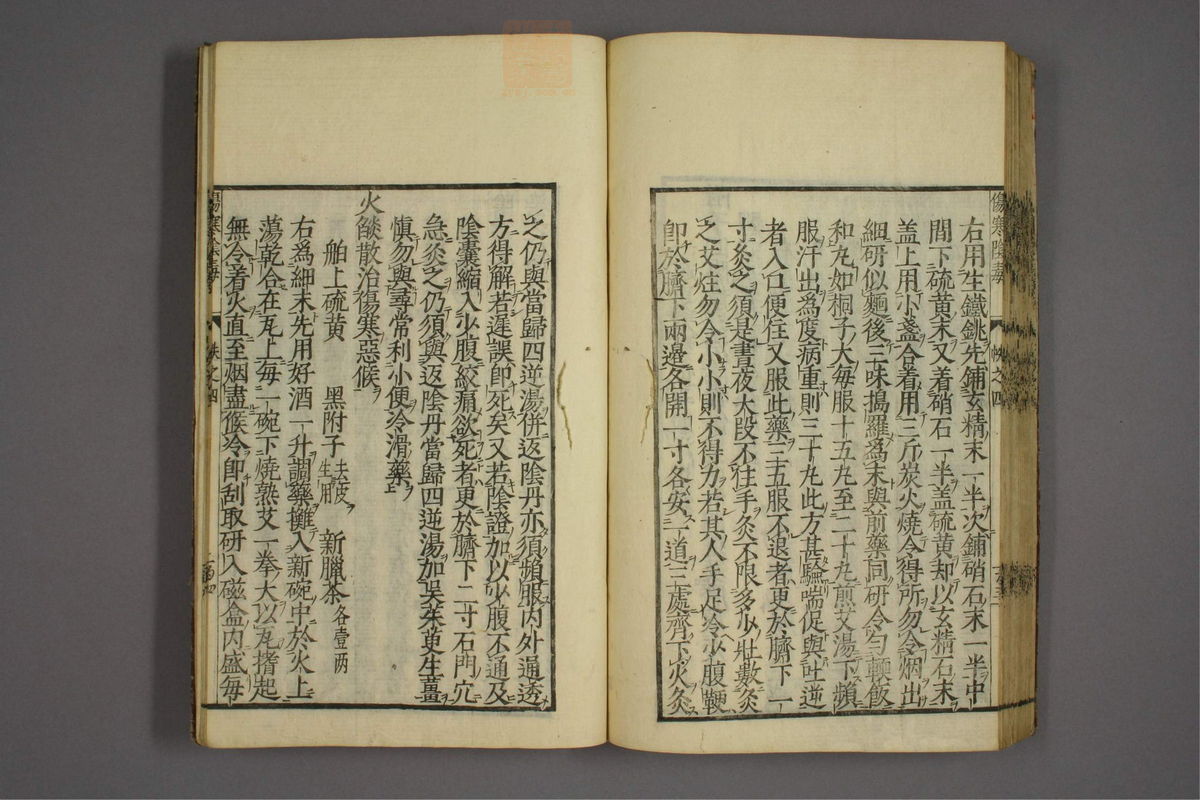 右用生鐵銚先鋪玄精末一半次鋪硝石末一半中
間下硫黄末又着硝石一半盖硫黄却以玄精石末
盖上用小盞合着用三斤炭火燒令得所勿令烟出
細研似麵後三味搗羅爲末與前藥同研令勻輭飯
和丸如桐子大毎服十五丸至二十丸煎艾湯下頻
服汗出爲度病重則三十丸此方甚驗喘促與吐逆
者入口便住又服此藥三五服不退者更於臍下一
寸灸之須是晝夜大段不住手灸不限多少壯數灸
之艾炷勿令小小則不得力若其人手足冷少腹鞕
即於臍下兩邊各開一寸各安一道三處齊下火灸
之仍與當歸四逆湯併返陰丹亦須頻服内外逼透
方得解若遲誤即死矣又若陰證加以少腹不通及
陰嚢縮入少腹絞痛欲死者更於臍下二寸石門穴
急灸之仍須與返陰丹當歸四逆湯加吳茱萸生薑
愼勿與尋常利小便冷滑藥
火燄散治傷寒惡候
舶上硫黄 黑附子去皮生用 新臘茶各壹两
右爲細末先用好酒一升調藥攤入新碗中於火上
蕩乾合在瓦上毎一碗下燒熟艾一拳大以瓦揩起
無令着火直至烟盡候冷即刮取研入磁盒内盛毎
傷寒陰毒
帙之四